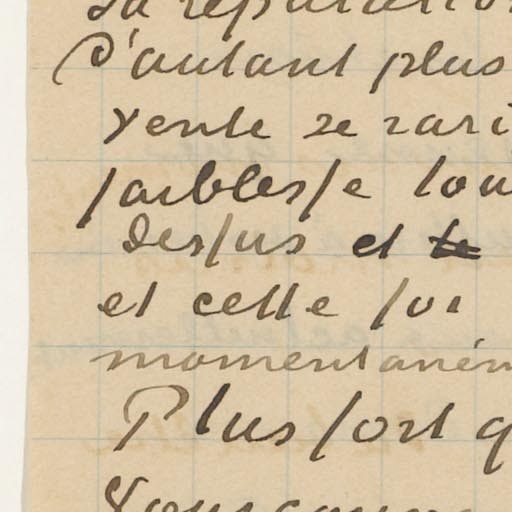 sa réputation
D'autant plus
vente se rari
faiblesse tou
dessus et le
et cette foi
momentaném
Plus fort q